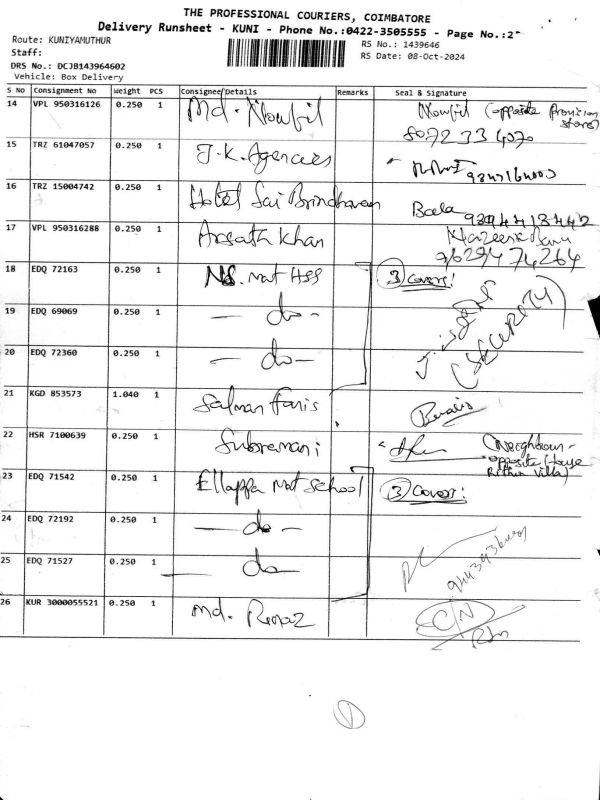 THE PROFESSIONAL COURIERS, COIMBATORE
Delivery Runsheet - KUNI - Phone No.:0422-3505555 - Page No.:2
Route: KUNIYAMUTHUR
RS No.: 1439646
Staff:
RS Date: 08-Oct-2024
DRS No.: DCJB143964602
Vehicle: Box Delivery
S No Consignment No Weight PCS Consignee/Details Remarks Seal & Signature
14 VPL 950316126 0.250 1 Md. Noufil Noufil (opposite Provision stores)
8072334070
15 TRZ 61047057 0.250 1 J.K. Agencies
16 TRZ 15004742 0.250 1 Hotel Sai Brindhavan Baala
17 VPL 950316288 0.250 1 Arsath Khan
9629474264
18 EDQ 72163 0.250 1 NS. Mat HSS 3 Covers!
19 EDQ 69069 0.250 1 — do — (SECURITY)
20 EDQ 72360 0.250 1 — do —
21 KGD 853573 1.040 1 Salman Faris
22 HSR 7100639 0.250 1 Subramani (Neighbour -
opposite House
Villa)
23 EDQ 71542 0.250 1 Ellappa Mat School 3 Covers!
24 EDQ 72192 0.250 1 — do —
25 EDQ 71527 0.250 1 — do
26 KUR 3000055521 0.250 1 Md. Riyaz C/N
1